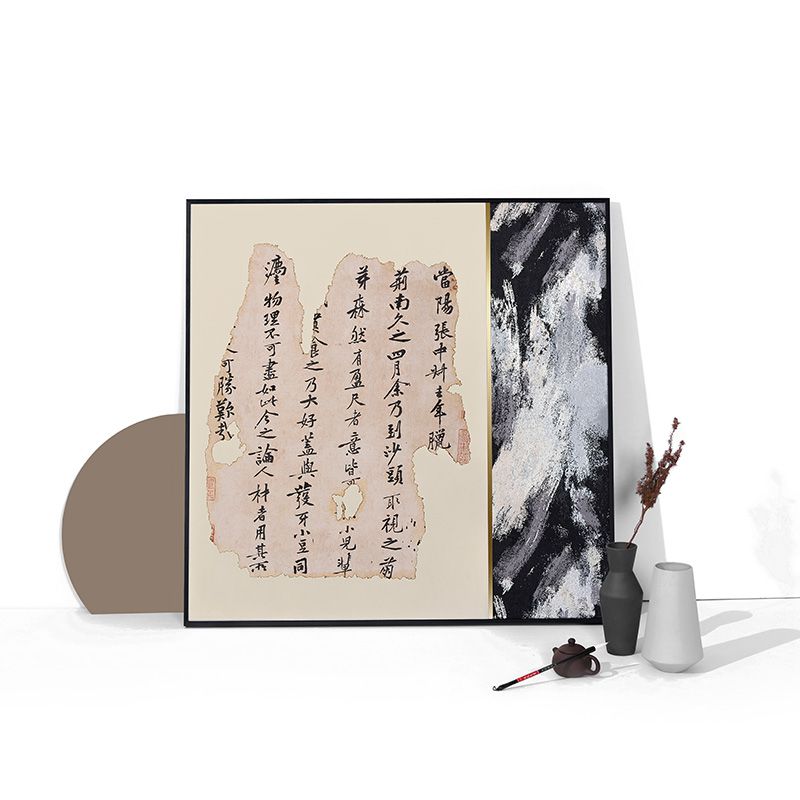 當陽張中叔去年臘
荊南久之四月余乃到沙頭取視之萌
芽森然有盈尺者意皆小兒輩
食之乃大好蓋與發牙小豆同
灋物理不可盡如此今之論人材者用其所
人可勝歎哉